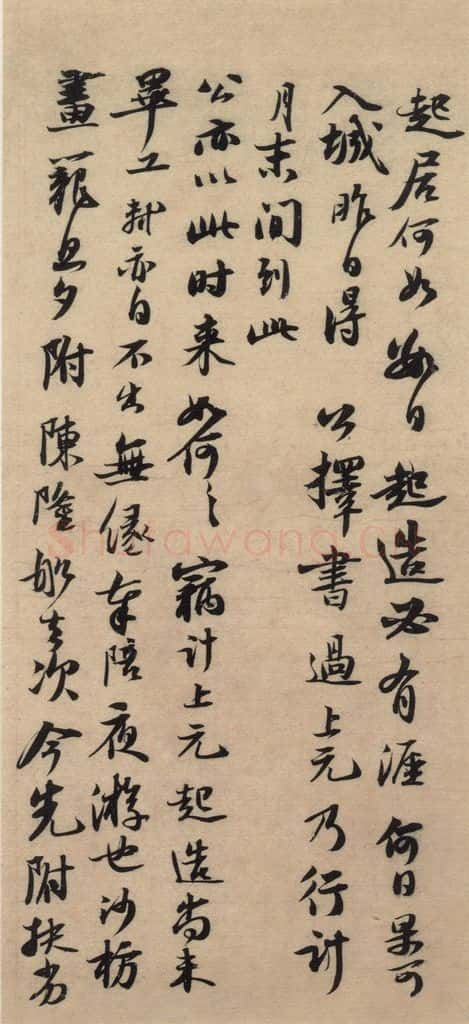 起居何如數日起造必有涯何日果可
入城昨日得公擇書過上元乃行計
月末間到此
公亦以此时来如何〻竊計上元起造尚未
畢工軾亦自不出無緣奉陪夜游也沙枋
畫籠旦夕附陳隆船去次今先附扶劣